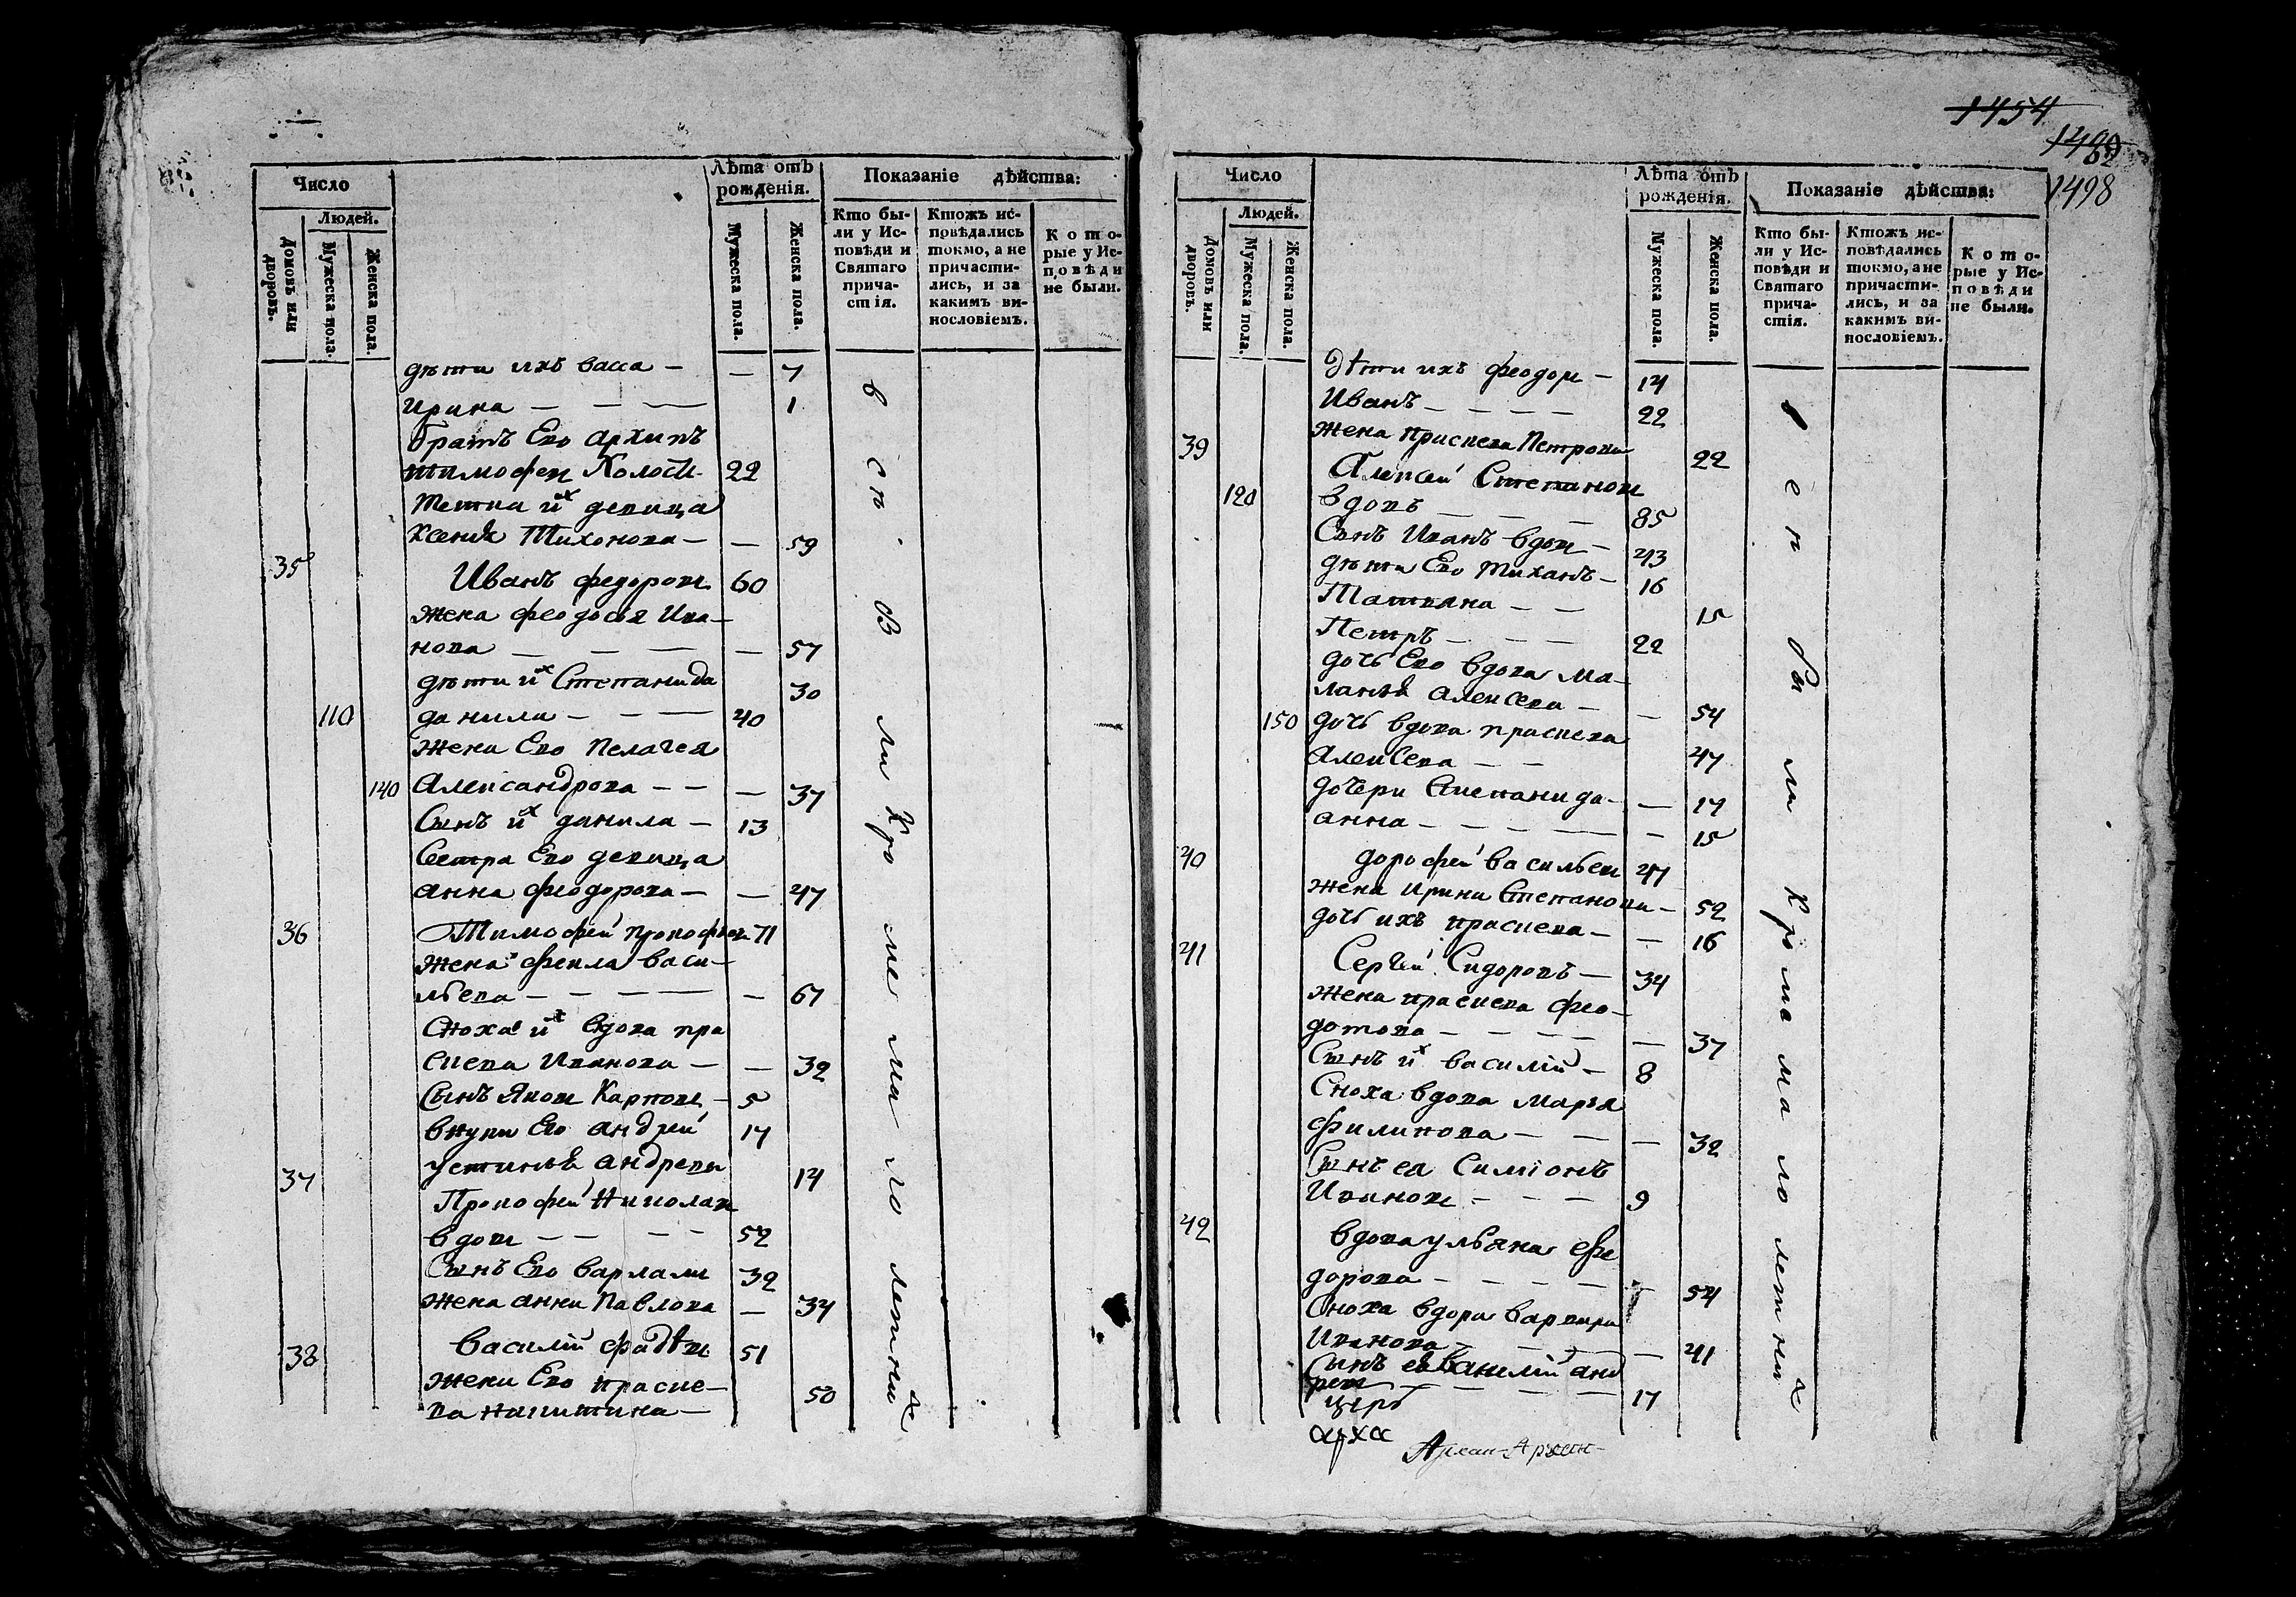 Число
Людей.
Домовъ или дворовъ.
Мужеска пола.
Женска пола.
Лѣта отъ рожденія.
Мужеска пола.
Женска пола.
Показаніе дѣйства:
Кто бы-
ли у Ис-
повѣди и
Святаго
прича-
стія.
Ктожъ ис-
повѣдались
токмо, а не
причасти-
лись, и за
какимъ ви-
нословіемъ.
К о т о-
рые у Ис-
повѣди
не были.
дѣти ихъ васса — — 7
Ирина — — — 1
братъ Его архипъ
тимофеев Холостъ 22
тетка их девица
Ксенія Тихонова — — 59
35 Иванъ федоровъ 60
жена феодосья Ива-
нова — — — — 57
дѣти их Степанида 30
110 данила — — — 40
жена Его Пелагея
140 Александрова — — — 37
Сынъ их данила — 13
Сестра Его девица
анна феодорова — — 47
36 Тимофей прокофьев 71
жена фекла васи-
льева — — — — 67
Сноха их вдова пра
скева Иванова — — 32
Сынъ Яков Карпов — 5
внуки Его андрей 17
устинья андреева 14
37 Прокофей Николаев
вдов — — — — 52
Сынъ Его варлам 32
жена анна Павлова — 34
38 василій фадѣев 51
жена Его праске-
ва никитина — 50
всѣ были кроме малолетних
1454
1498
Число
Людей.
Домовъ или дворовъ.
Мужеска пола.
Женска пола.
Лѣта отъ рожденія.
Мужеска пола.
Женска пола.
Показаніе дѣйства:
Кто бы-
ли у Ис-
повѣди и
Святаго
прича-
стія.
Ктожъ ис-
повѣдались
токмо, а не
причасти-
лись, и за
какимъ ви-
нословіемъ.
К о т о-
рые у Ис-
повѣди
не были.
дѣти ихъ феодор — 14
Иванъ — — — — 22
жена праскева Петрова 22
39 Алексей Степанов
120 вдовъ — — — 85
Сынъ Иванъ вдов — 43
дѣти Его — 16
Татьяна — — 15
Петръ — — — 22
дочь Его вдова ма-
ланья алексева — — 54
150 дочь вдова праскева
алексева — — 47
дочери Степанида — — 17
анна — — — — — 15
40 дорофей васильев 47
жена ирина Степанова — 52
дочь ихъ праскева — — 16
41 Сергей Сидоровъ — 34
жена праскева фео-
дотова — — — — — 37
Сынъ их василій — 8
Сноха вдова марья
филипова — — — 32
Сынъ еа Симіонъ
Иванов — — — 9
42 вдова ульяна фе
дорова — — — — — 54
Сноха вдова варвара
Иванова — — — — 41
Сынъ ея андреев — — — — 17
церк
арха
всѣ были кромѣ малолетних